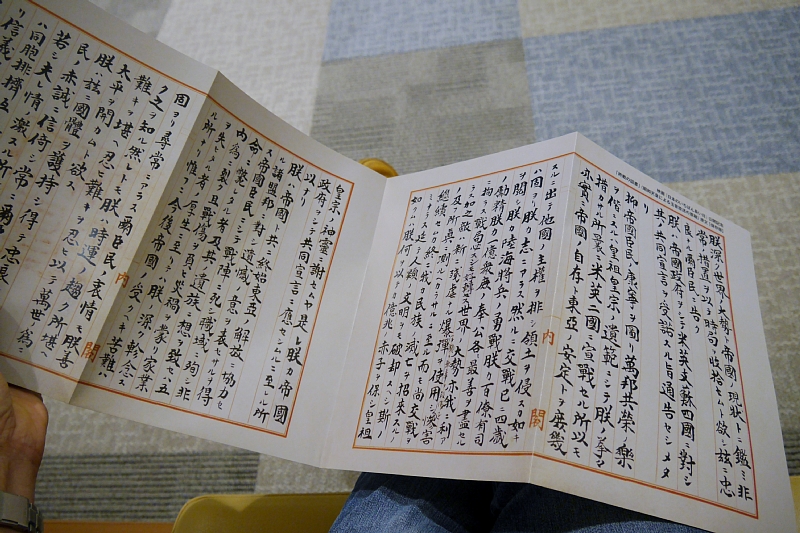 朕深ク世界ノ大勢ト帝國ノ現狀トニ鑑ミ非
常ノ措置ヲ以テ時局ヲ收拾セムト欲シ茲ニ忠
良ナル爾臣民ニ告ク
朕ハ帝國政府ヲシテ米英支蘇四國ニ對シ
其ノ共同宣言ヲ受諾スル旨通告セシメタ
リ
抑帝國臣民ノ康寧ヲ圖リ萬邦共榮ノ樂
ヲ偕ニスルハ皇祖皇宗ノ遺範ニシテ朕ノ拳々
措カサル所曩ニ米英二國ニ宣戰セル所以モ
亦實ニ帝國ノ自存ト東亞ノ安定トヲ庶幾
内閣
スルニ出テ他國ノ主權ヲ排シ領土ヲ侵スカ如キ
ハ固ヨリ朕カ志ニアラス然ルニ交戰已ニ四歲
ヲ閱シ朕カ陸海將兵ノ勇戰朕カ百僚有司
ノ勵精朕カ一億衆庶ノ奉公各最善ヲ盡セルニ
拘ラス戰局必スシモ好轉セス世界ノ大勢亦我ニ利ア
ラス加之敵ハ新ニ殘虐ナル爆彈ヲ使用シテ慘害
ノ及フ所眞ニ測ルヘカラサルニ至ル而モ尚交戰ヲ
繼續セムカ終ニ我カ民族ノ滅亡ヲ招來スルノ
ミナラス延テ人類ノ文明ヲモ破却スヘシ斯ノ
如クムハ朕何ヲ以テカ億兆ノ赤子ヲ保シ皇祖
内閣
皇宗ノ神靈ニ謝セムヤ是レ朕カ帝國
政府ヲシテ共同宣言ニ應セシムルニ至レル所
以ナリ
朕ハ帝國ト共ニ終始東亞ノ解放ニ協力セ
ル諸盟邦ニ對シ遺憾ノ意ヲ表セサルヲ得
ス帝國臣民ニシテ戰陣ニ死シ職域ニ殉シ非
命ニ斃レタル者及其ノ遺族ニ想ヲ致セハ五
内爲ニ裂ク且戰傷ヲ負ヒ災禍ヲ蒙リ家業
ヲ失ヒタル者ノ厚生ニ至リテハ朕ノ深ク軫念ス
ル所ナリ惟フニ今後帝國ノ受クヘキ苦難ハ
固ヨリ尋常ニアラス爾臣民ノ衷情モ朕善
ク之ヲ知ル然レトモ朕ハ時運ノ趨ク所堪ヘ
難キヲ堪ヘ忍ヒ難キヲ忍ヒ以テ萬世ノ爲ニ
太平ヲ開カムト欲ス
朕ハ茲ニ國體ヲ護持シ得テ忠良
民ノ赤誠ニ信倚シ常ニ爾
若シ夫レ情ノ激スル所
ハ同胞排擠互ニ
リ信義